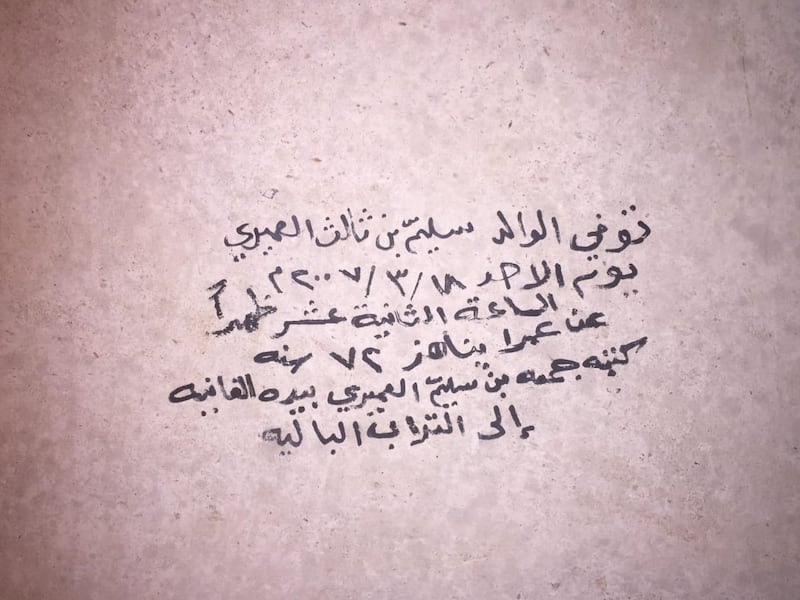 توفي الوالد سليّم بن ثالث العميري
يوم الاحد ١٨/٣/٢٠٠٧م
الساعة الثانية عشر ظهراً
عن عمرا يناهز ٧٢ سنه
كتبه جمعه بن سليّم العميري بيده الفانيه
إلى التراب الباليه